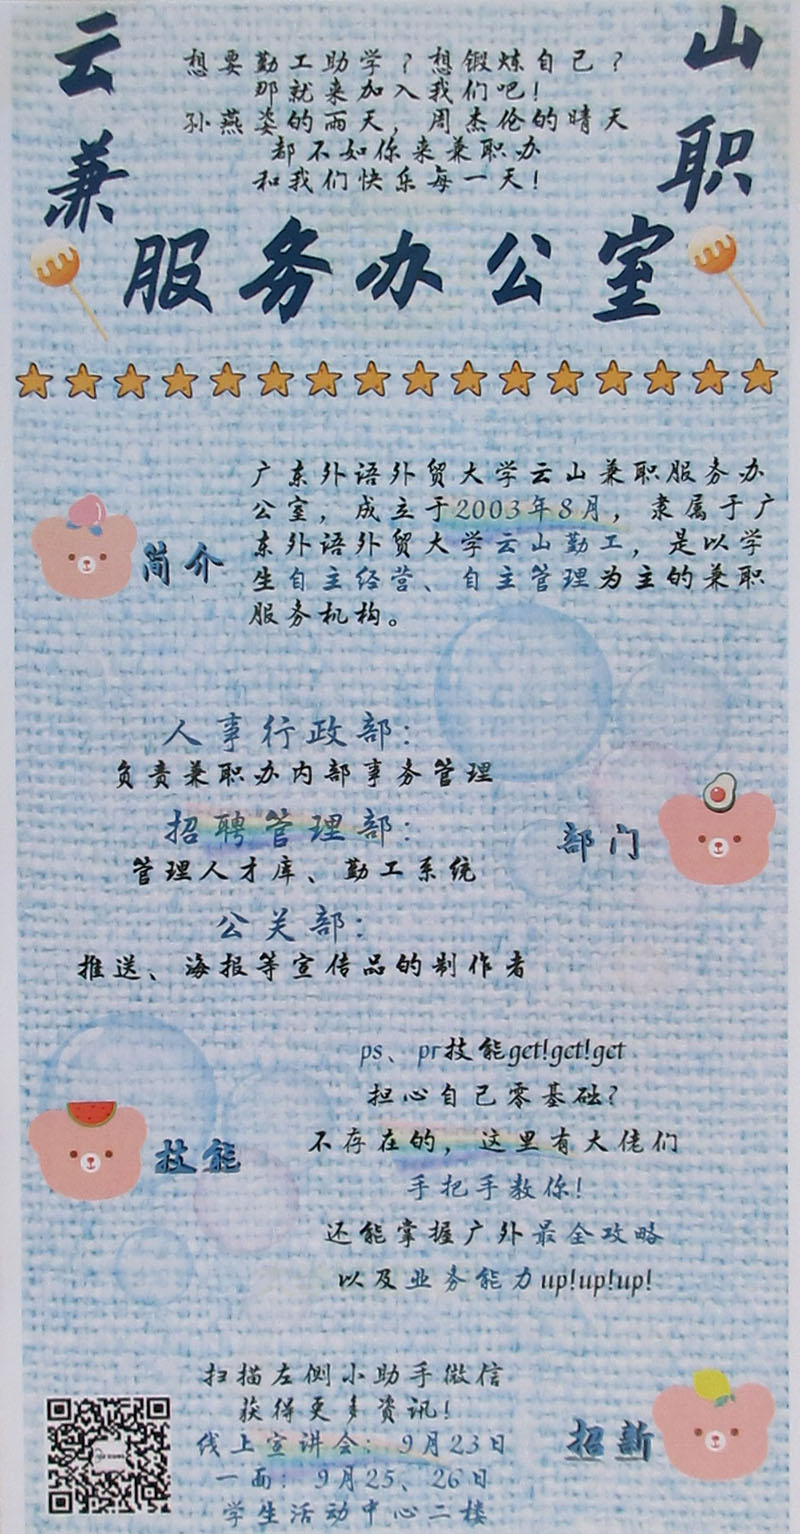 云山
兼职
想要勤工助学？想锻炼自己？
那就来加入我们吧！
孙燕姿的雨天，周杰伦的晴天
都不如你来兼职办
和我们快乐每一天！
服务办公室
简介
广东外语外贸大学云山兼职服务办
公室，成立于2003年8月，隶属于广
东外语外贸大学云山勤工，是以学
生自主经营、自主管理为主的兼职
服务机构。
部门
人事行政部：
负责兼职办内部事务管理
招聘管理部：
管理人才库、勤工系统
公关部：
推送、海报等宣传品的制作者
技能
ps、pr技能get!get!get
担心自己零基础？
不存在的，这里有大佬们
手把手教你！
还能掌握广外最全攻略
以及业务能力up!up!up!
招新
扫描左侧小助手微信
获得更多资讯！
线上宣讲会：9月23日
一面：9月25、26日
学生活动中心二楼